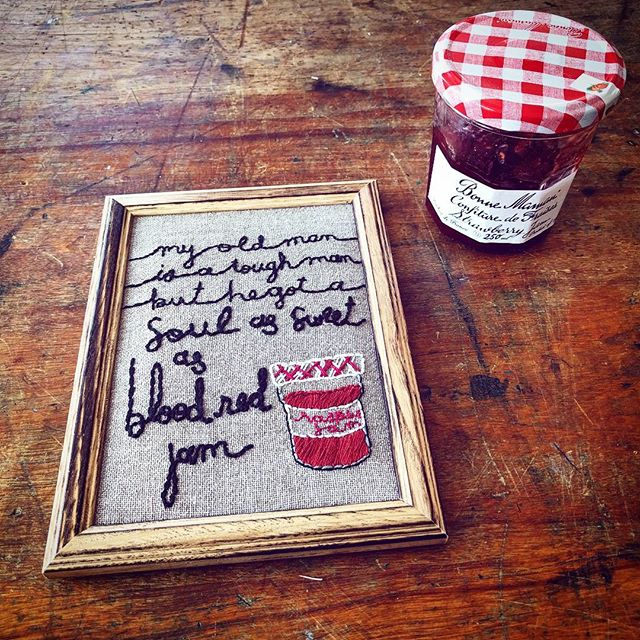 my old man
is a tough man
but he got a
soul as sweet
as
blood red
jam
Bonne Maman
Confiture de Fraises
Strawberry
250ml